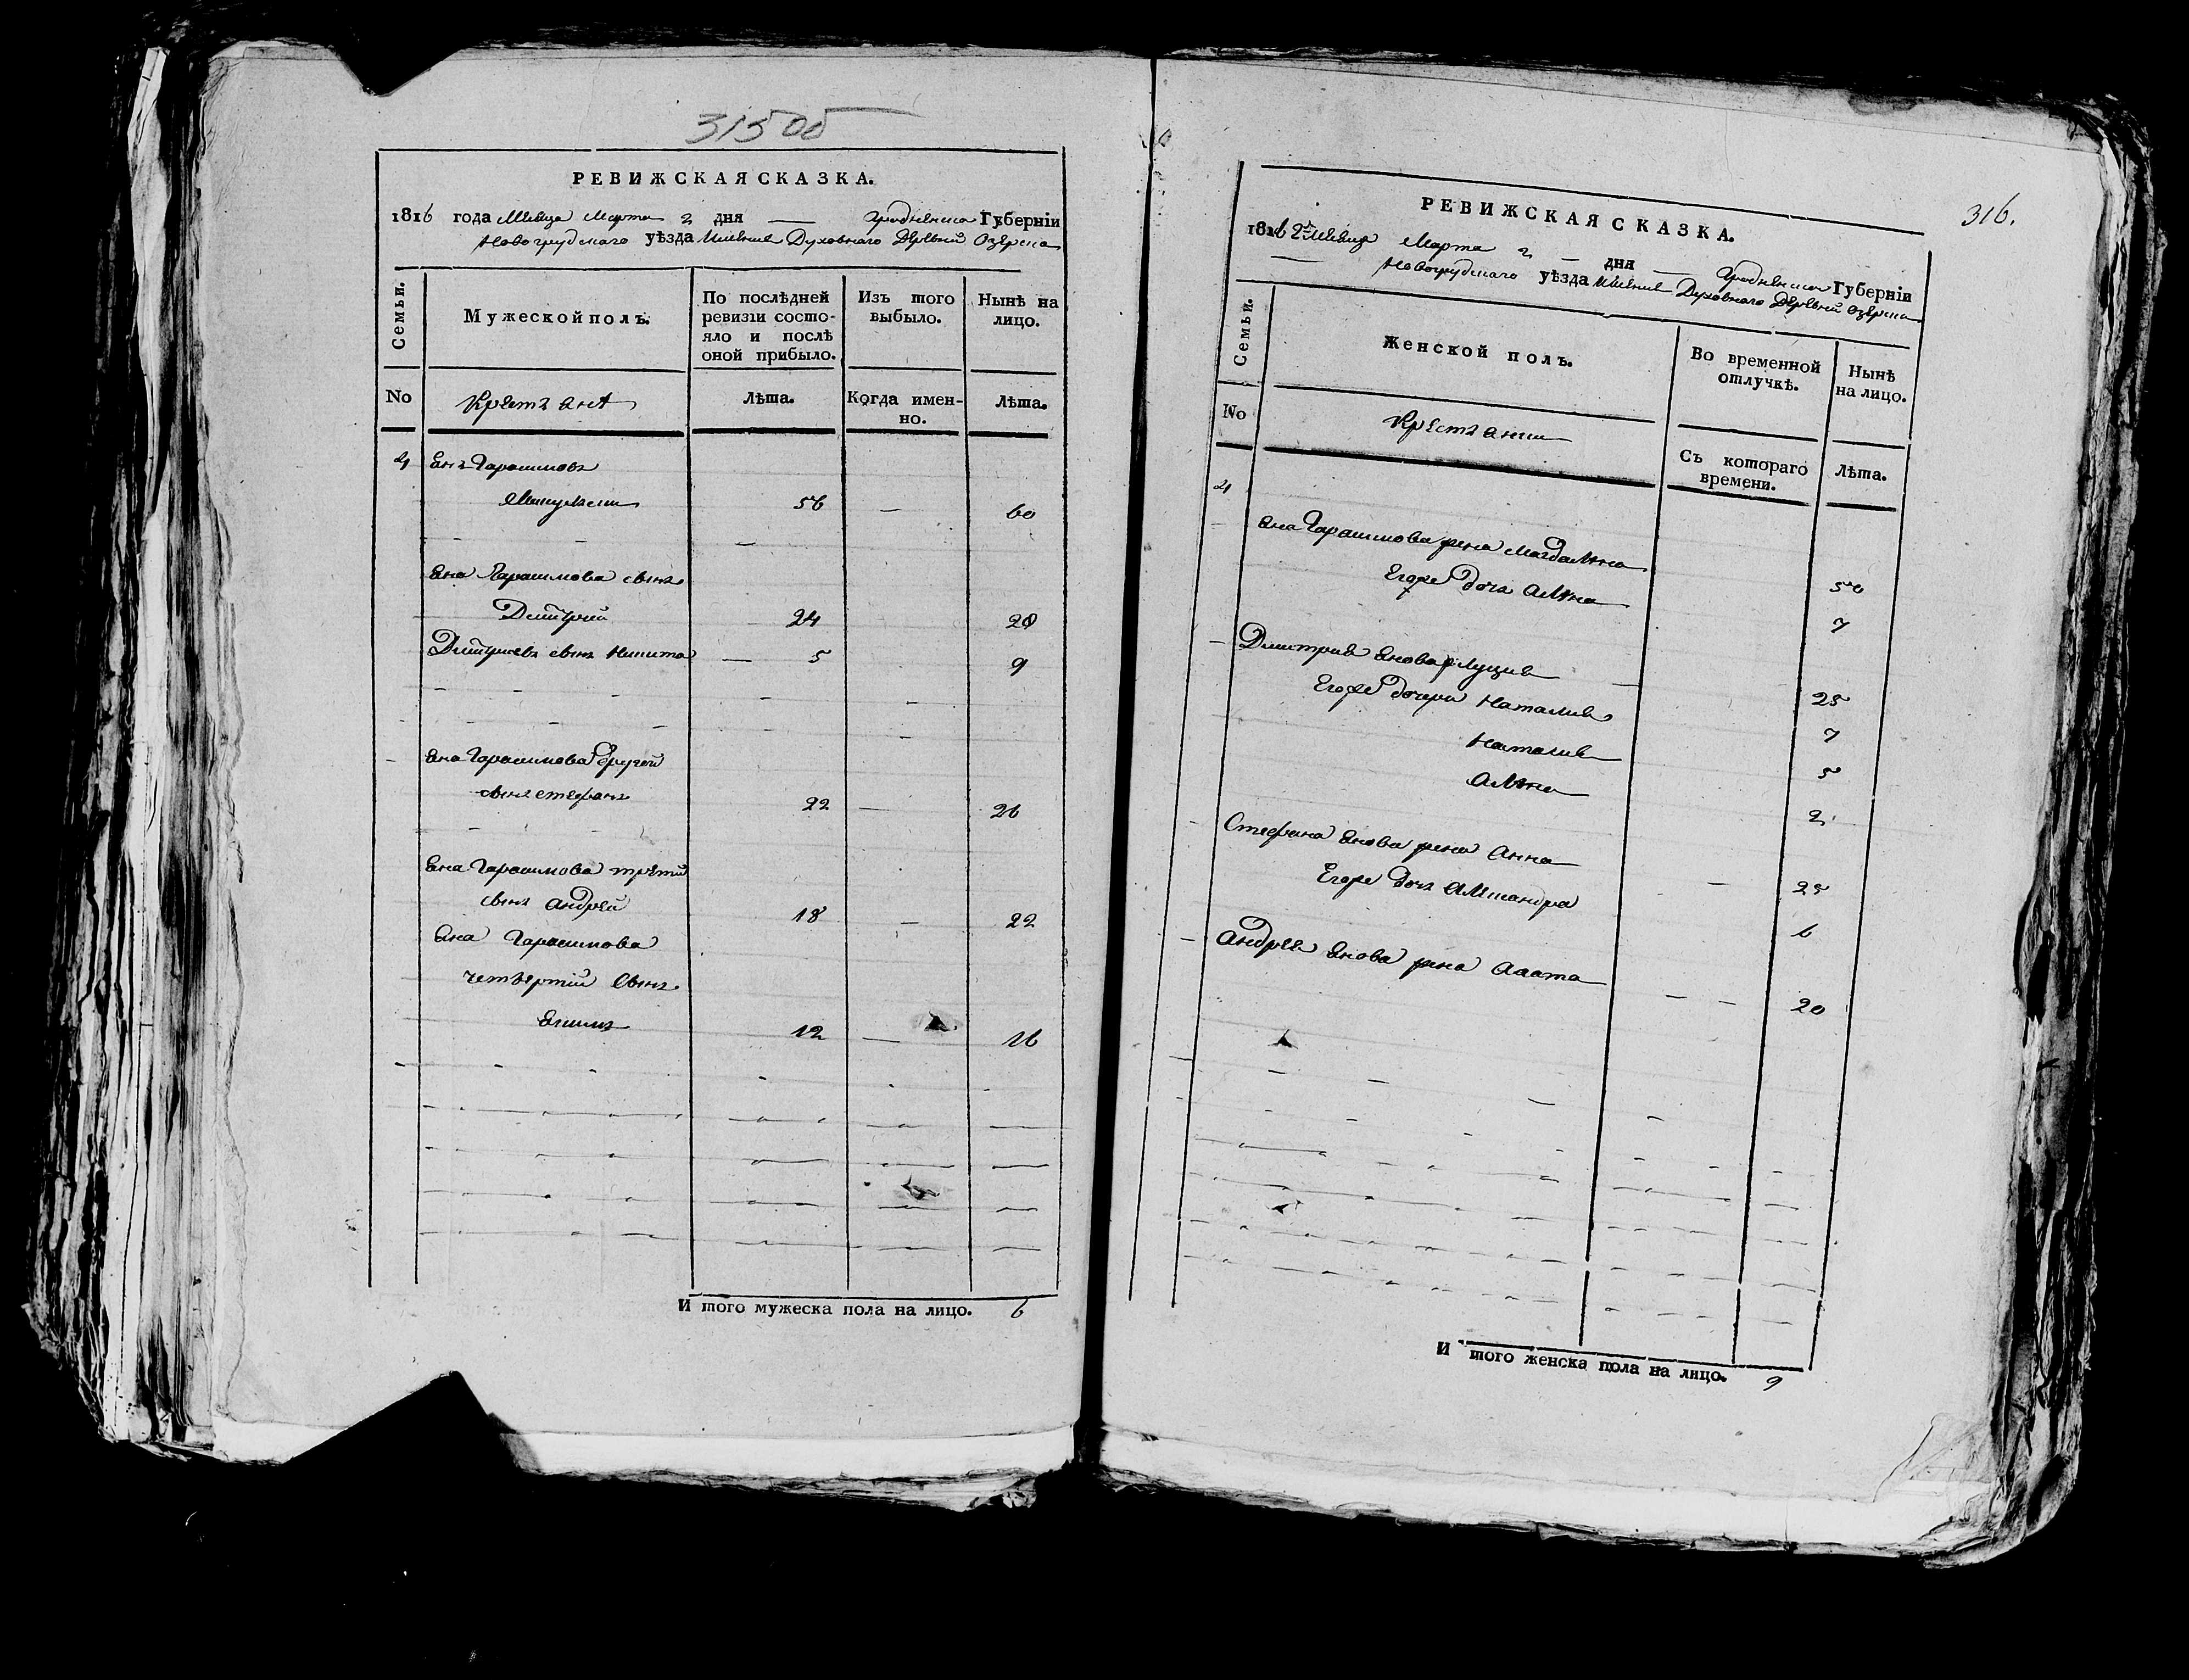 315 об
РЕВИЖСКАЯ СКАЗКА.
1816 года Месяца Марта 2 дня — Гродненска Губернїи
Новогрудского уѣзда Имение Духовнаго Деревни Озерка
Семьи.
Мужеской полъ.
По послѣдней ревизїи состояло и послѣ оной прибыло.
Изъ того выбыло.
Нынѣ на лицо.
No
Крестьяне
Лѣта.
Когда именно.
Лѣта.
4 Янъ Гарасимовъ
56 — 60
Яна Гарасимова сынъ
Дмитрий 24 28
Дмитриевъ сынъ Никита — 5 9
Яна Гарасимова другой
сынъ Стефанъ 22 — 26
Яна Гарасимова третий
сынъ Андрей 18 — 22
Яна Гарасимова
четвертий сынъ
Якимъ 12 — 16
И того мужеска пола на лицо. 6
316.
РЕВИЖСКАЯ СКАЗКА.
1816 Месяца Марта 2 — дня — Гродненска Губернїи
— Новогрудского уѣзда Имение Духовнаго Деревни Озерка
Семьи.
Женской полъ.
Во временной отлучкѣ.
Нынѣ на лицо.
No
Крестьянки
Съ котораго времени.
Лѣта.
4
Яна Гарасимова жена Магдалена 50
Егоже дочь Алена 7
Дмитрия Янова ж Луция — 25
Егоже дочери Наталия 7
Наталия 5
Алена 2
Стефана Янова жена Анна — 25
Егоже дочь Александра 6
Андрея Янова жена Агата — — 20
И того женска пола на лицо. 9